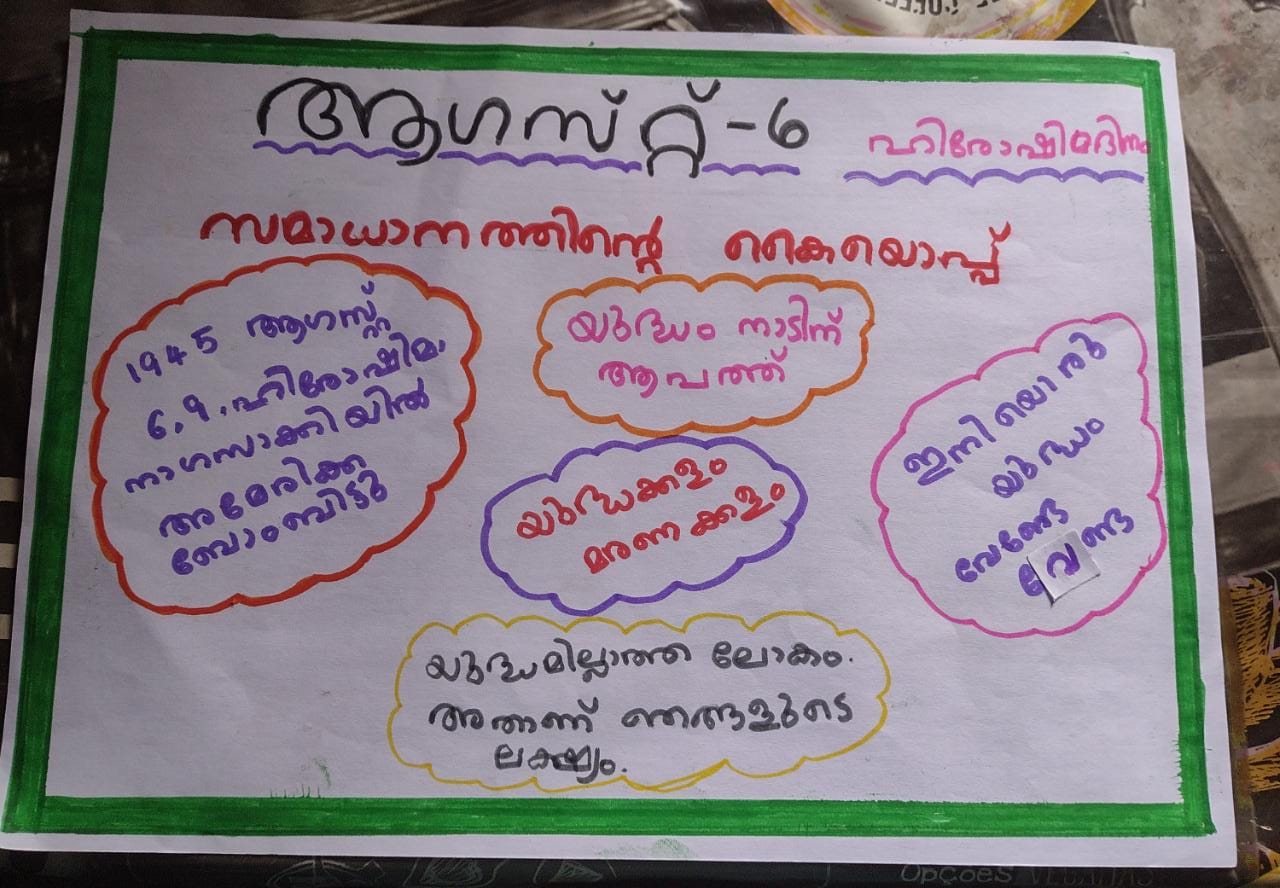 ആഗസ്റ്റ്-6
ഹിരോഷിമദിനം
സമാധാനത്തിന്റെ കൈയൊപ്പ്
1945 ആഗസ്റ്റ്
6,9.ഹിരോഷിമാ
നാഗസാക്കിയിൽ
അമേരിക്ക
ബോംബിട്ടു
യുദ്ധം നാടിന്
ആപത്ത്
യുദ്ധക്കളം
മരണക്കളം
ഇനിയൊരു
യുദ്ധം
വേണ്ടേ
വേണ്ട
യുദ്ധമില്ലാത്ത ലോകം.
അതാണ് ഞങ്ങളുടെ
ലക്ഷ്യം.
Opções